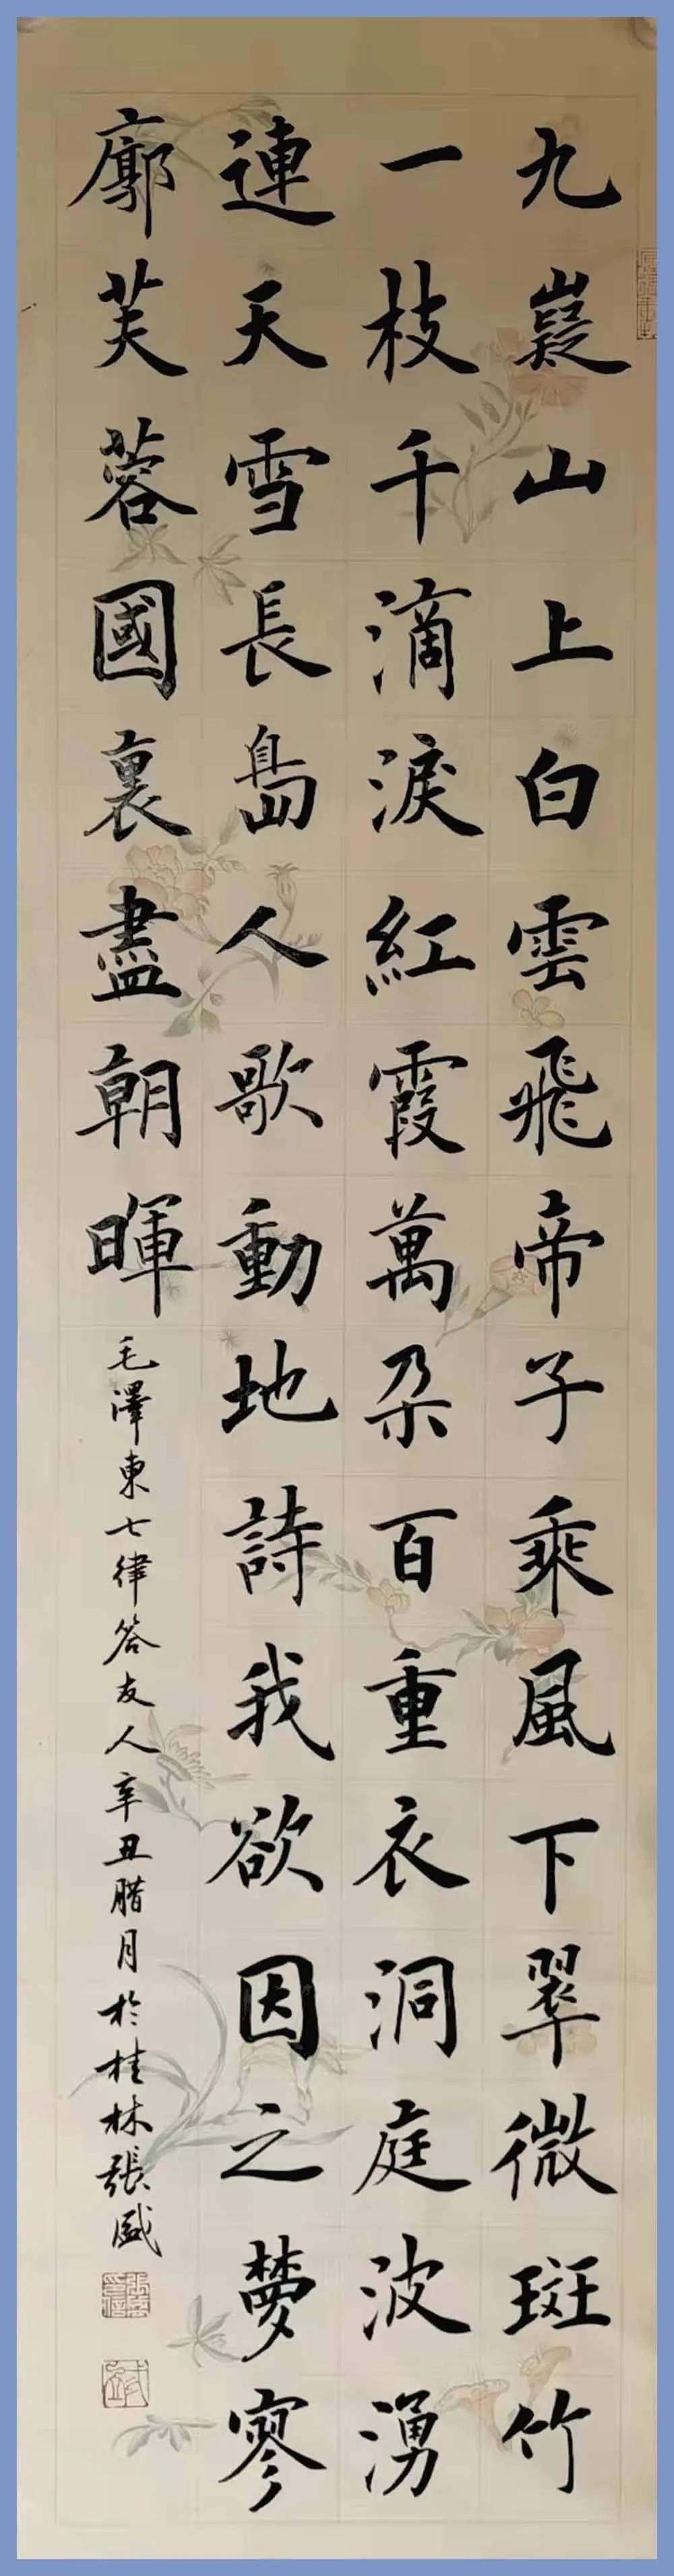 九嶷山上白雲飛帝子乘風下翠微斑竹
一枝千滴淚紅霞萬朶百重衣洞庭波湧
連天雪長島人歌動地詩我欲因之夢寥
廓芙蓉國裏盡朝暉
毛澤東七律答友人辛丑腊月於桂林張盛